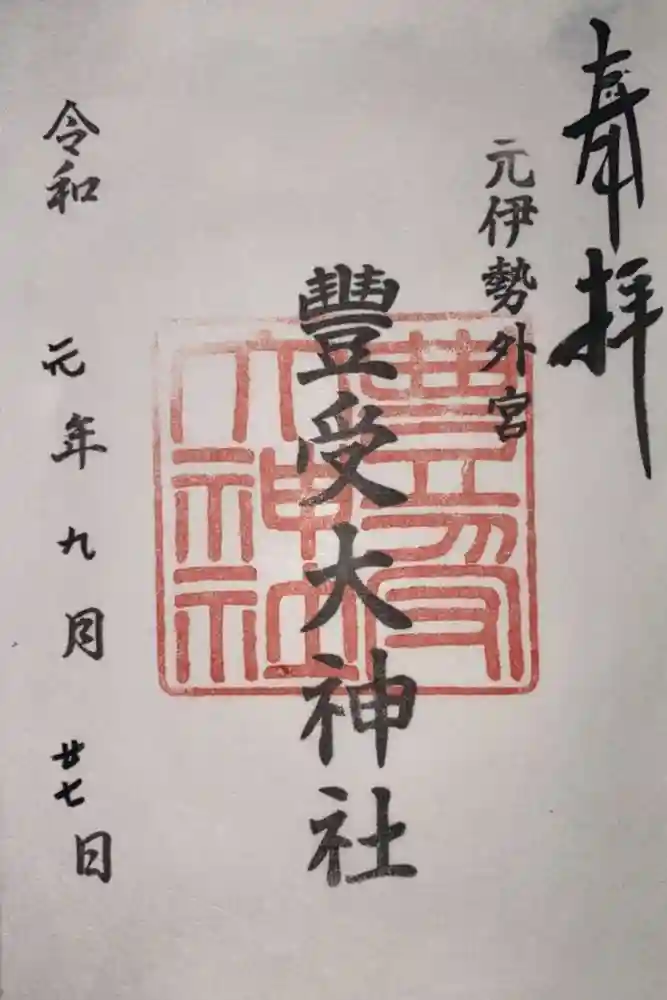 奉拝
元伊勢外宮
豐受大神社
豊受大神社
令和 元年 九月 廿七日